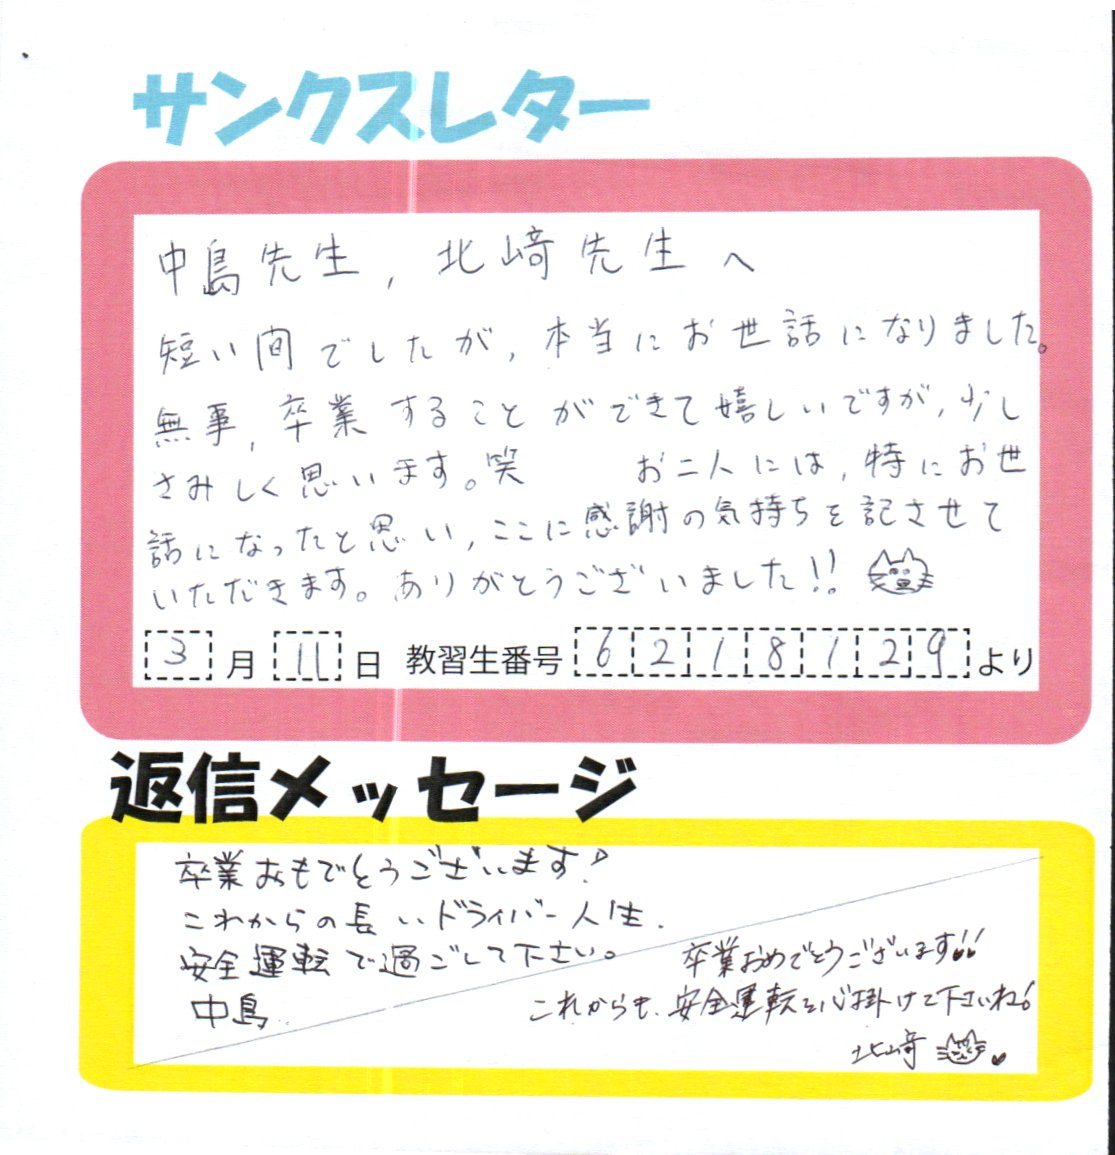 サンクスレター
中島先生，北﨑先生へ
短い間でしたが，本当にお世話になりました。
無事，卒業することができて嬉しいですが，少し
さみしく思います。笑 お二人には，特にお世
話になったと思い，ここに感謝の気持ちを記させて
いただきます。ありがとうございました!!
3月11日 教習生番号 6218129 より
返信メッセージ
卒業おめでとうございます!
これからの長いドライバー人生.
安全運転で過ごして下さい。
中島
卒業おめでとうございます!!
これからも、安全運転を心掛けて下さいね!
北﨑